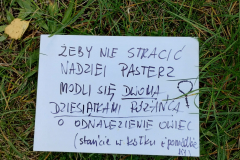 ŻEBY NIE STRACIĆ
NADZIEI PASTERZ
MODLI SIĘ DWOMA
DZIESIĄTKAMI RÓŻAŃCA
O ODNALEZIENIE OWIEC
(stańcie w